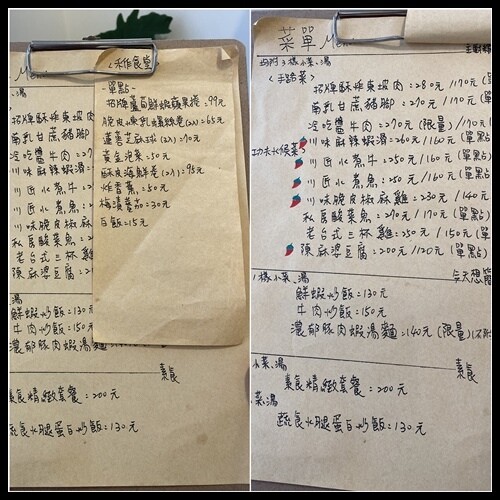 Me
湯
招牌酥炸東坡肉
南乳甘蔗豬腳
冷吃醬牛肉=27
川味麻辣蝦滑=2
川匠水煮牛=2
川匠水煮魚=2
川味脆皮椒麻
私房酸菜魚=2
老台式三杯
陳麻婆豆腐=2
湯
鮮蝦炒飯=130
牛肉炒飯=150
濃郁豚肉蝦湯
素食
素食精緻套餐=200元
蔬食火腿蛋白炒飯=130元
<禾作食堂
~單點~
招牌蘆筍鮮蝦蘋果捲=99元
脆皮煉乳爆絲卷(2入)=65元
蓮蓉芝麻球(2入)=70元
黃金泡菜=50元
酥皮海鮮卷(2入)=95元
炸香蕉=50元
梅漬蕃茄=30元
白飯=15元
菜單 Me
均附3樣小菜、湯
<手路菜>
招牌酥炸東坡肉=280元/170元(單
南乳甘蔗豬腳=270元/170元(單
冷吃醬牛肉=270元(限量)/170元(單
川味麻辣蝦滑=260元/160元(單點)
功夫水便菜
川匠水煮牛=250元/160元(單點)
川匠水煮魚=250元/160元(單點)
川味脆皮椒麻雞=230元/140元
私房酸菜魚=270元/170元(單點)
老台式三杯雞=250元/150元(單
陳麻婆豆腐=200元/120元(單點)
1樣小菜、湯
今天想簡
鮮蝦炒飯=130元
牛肉炒飯=150元
濃郁豚肉蝦湯麵=140元(限量)
小菜、湯
素食
素食精緻套餐=200元
菜、湯
蔬食火腿蛋白炒飯=130元